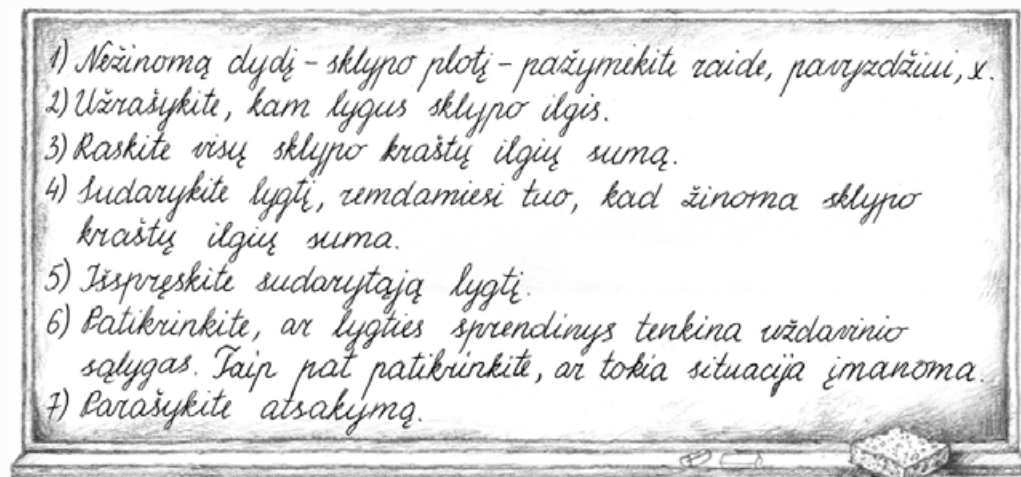 1) Nežinomą dydį – sklypo plotį – pažymėkite raide, pavyzdžiui, x.
2) Užrašykite, kam lygus sklypo ilgis.
3) Raskite visų sklypo kraštų ilgių sumą.
4) Sudarykite lygtį, remdamiesi tuo, kad žinoma sklypo
kraštų ilgių suma.
5) Išspręskite sudarytąją lygtį.
6) Patikrinkite, ar lygties sprendinys tenkina uždavinio
sąlygas. Taip pat patikrinkite, ar tokia situacija įmanoma.
7) Parašykite atsakymą.